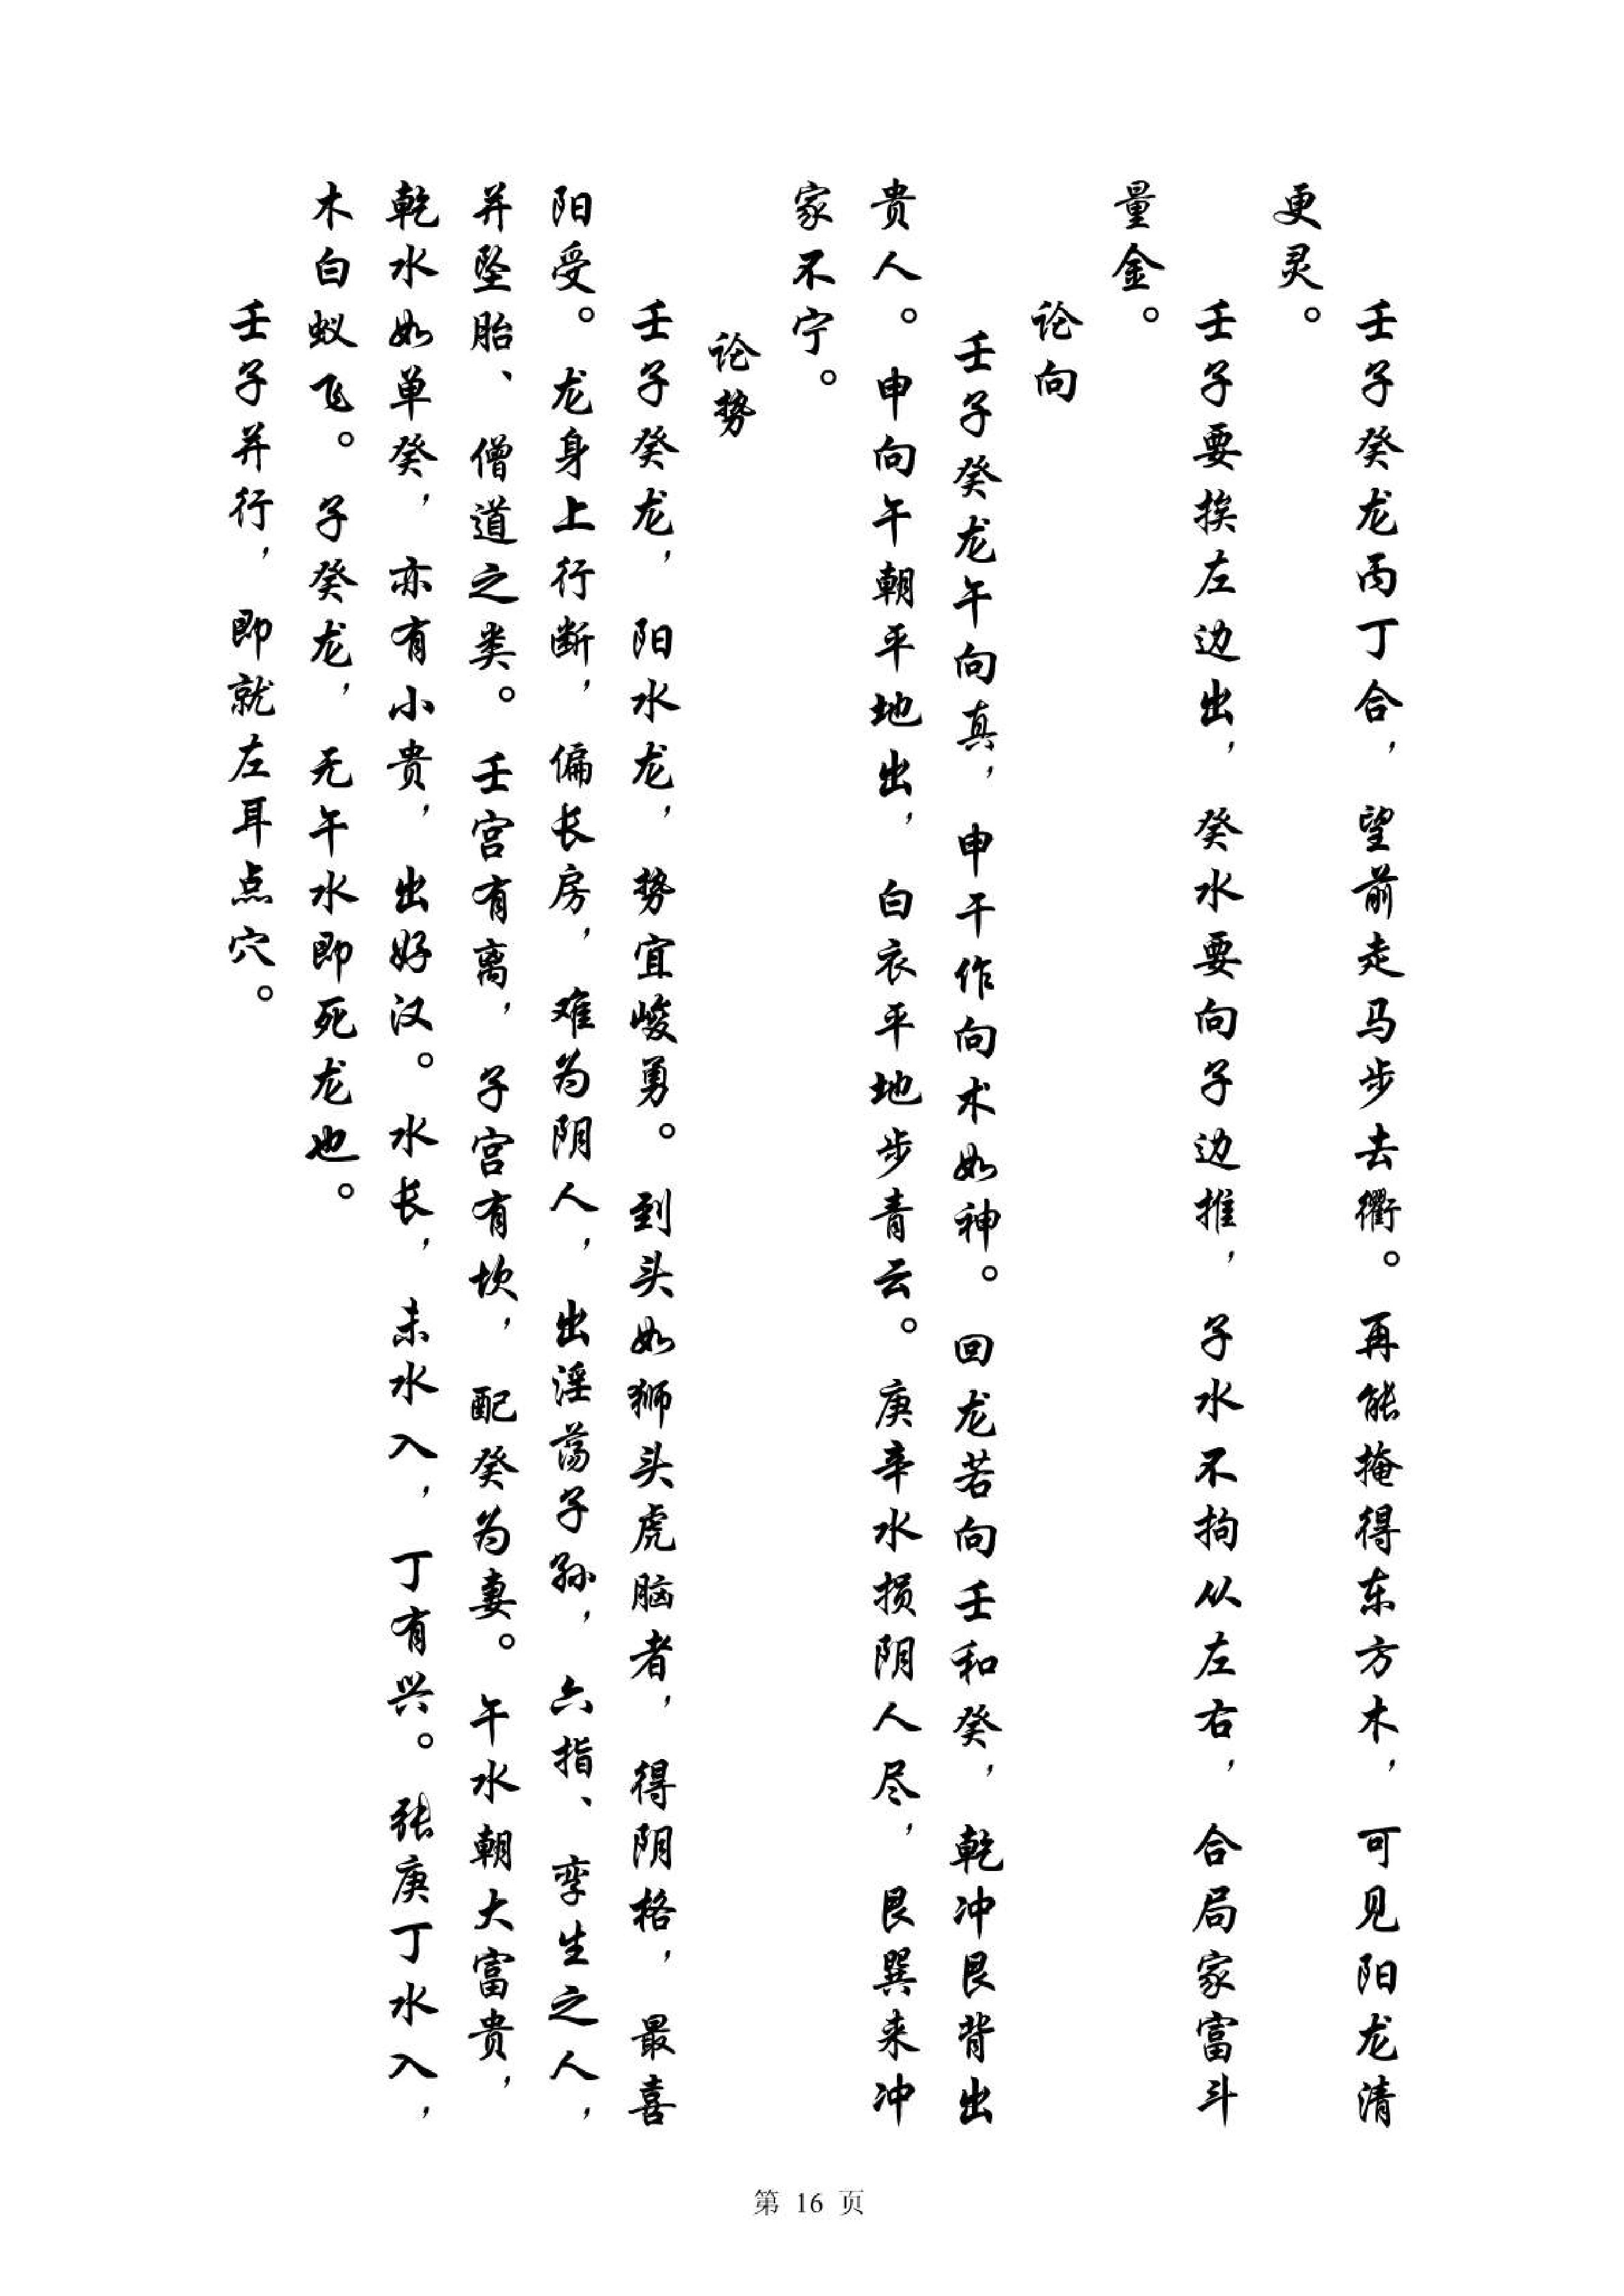 壬子癸龙丙丁合，望前走马步去衢。再能掩得东方木，可见阳龙清
更灵。
壬子要挨左边出，癸水要向子边推，子水不拘从左右，合局家富斗
量金。
论向
壬子癸龙午向真，申干作向术如神。回龙若向壬和癸，乾冲艮背出
贵人。申向午朝平地出，白衣平地步青云。庚辛水损阴人尽，艮巽来冲
家不宁。
论势
壬子癸龙，阳水龙，势宜峻勇。到头如狮头虎脑者，得阴格，最喜
阳受。龙身上行断，偏长房，难为阴人，出淫荡子孙，六指、孪生之人，
并坠胎、僧道之类。壬宫有离，子宫有坎，配癸为妻。午水朝大富贵，
乾水如单癸，亦有小贵，出好汉。水长，未水入，丁有兴。张庚丁水入，
木白蚁飞。子癸龙，无午水即死龙也。
壬子并行，即就左耳点穴。
第 16 页